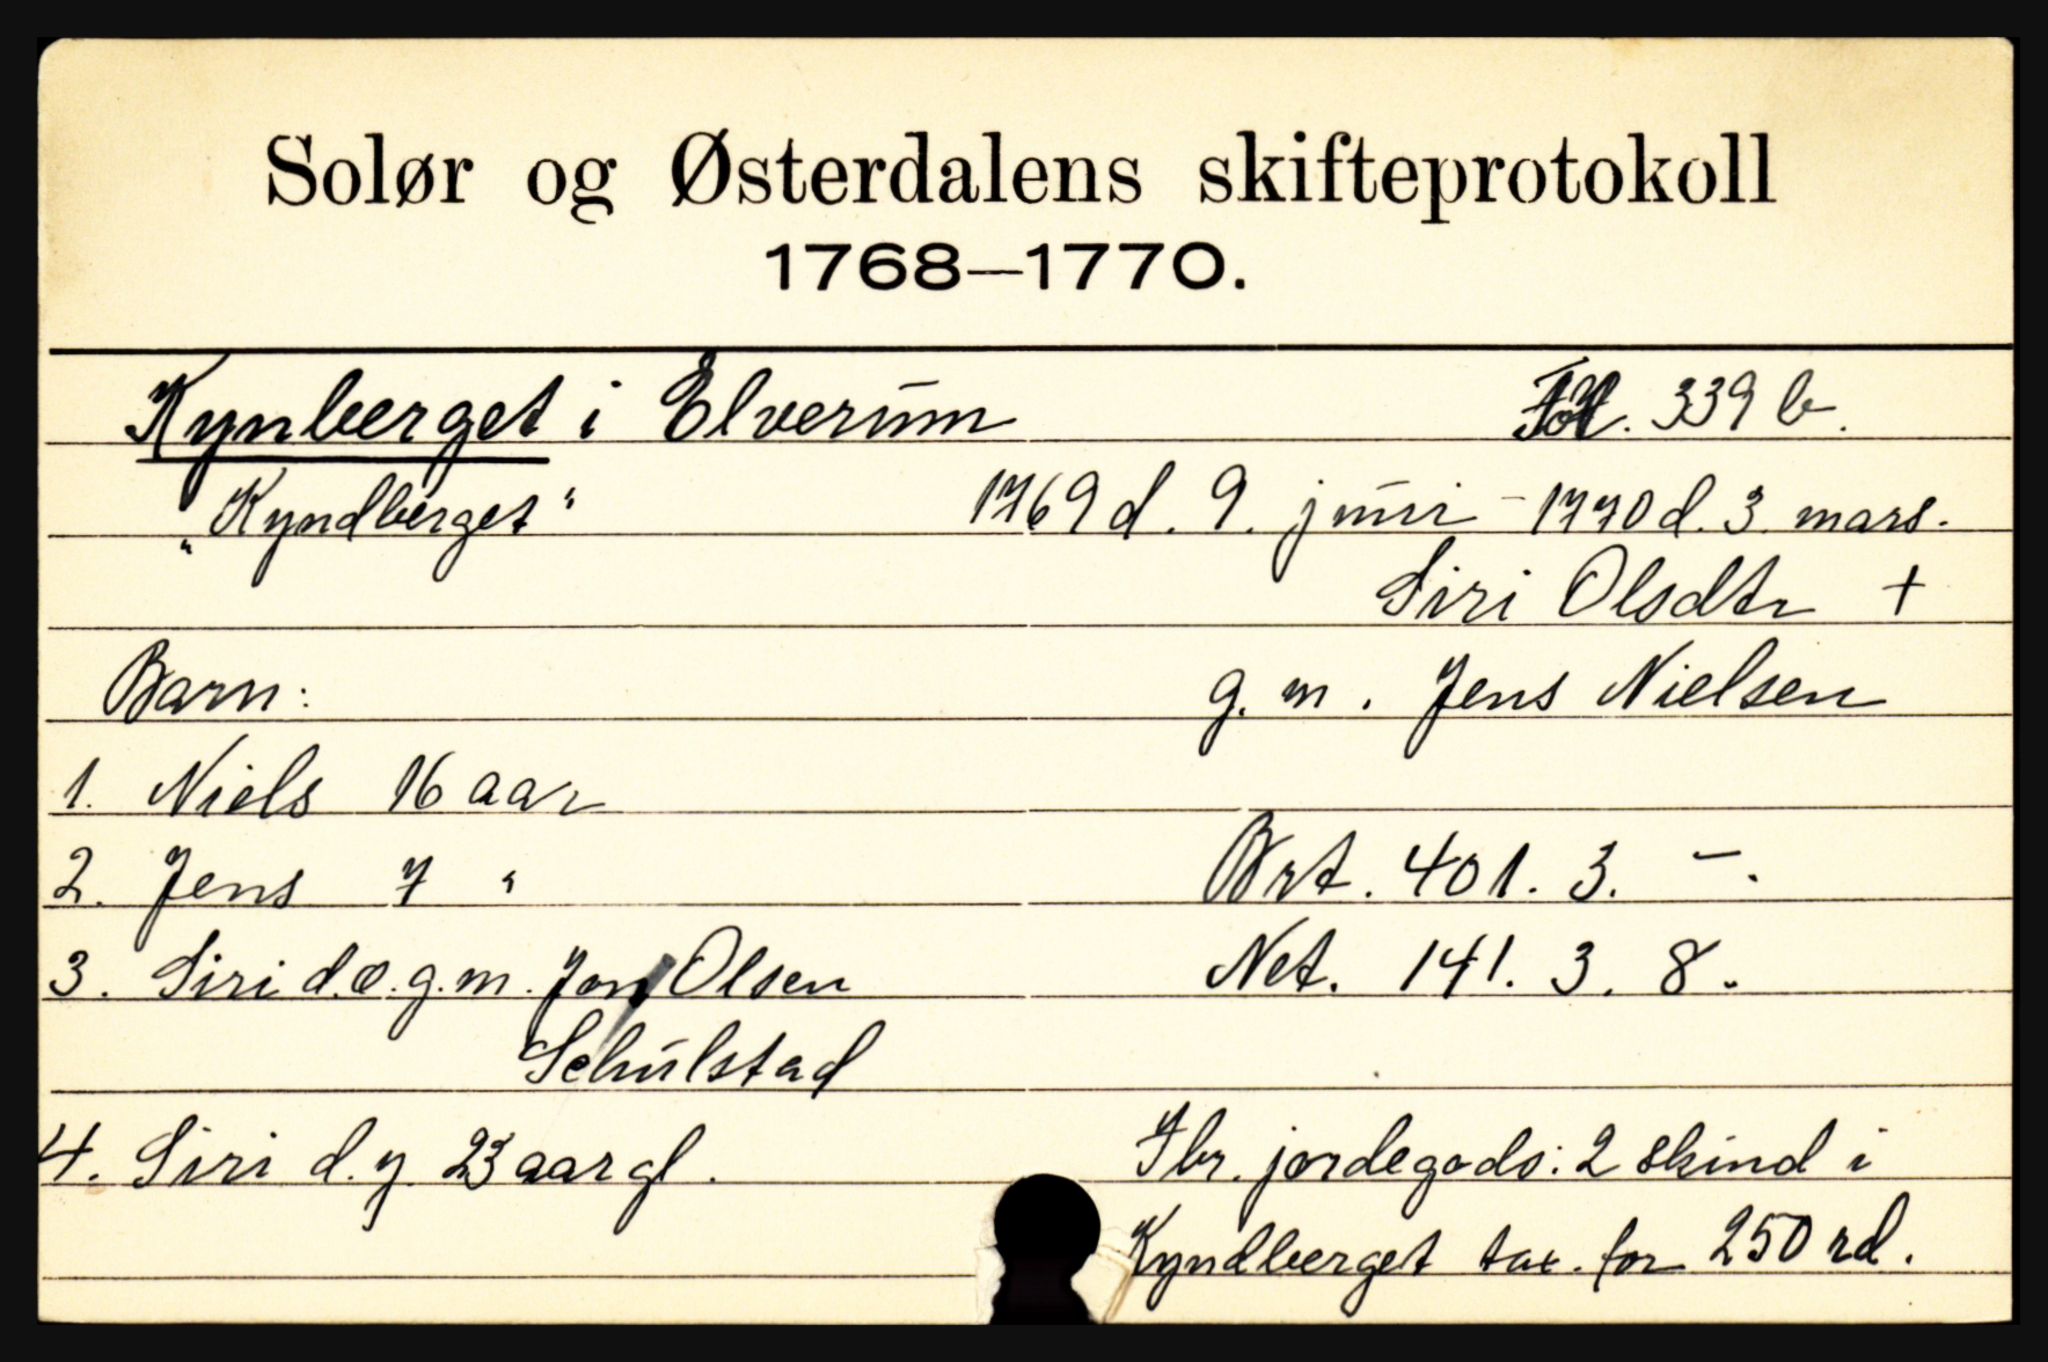 Solør og Østerdalens skifteprotokoll
1768—1770.
Kynberget i Elverum Fol. 339 b.
„Kyndberget“ 1769 d. 9. juni - 1770 d. 3. mars.
Siri Olsdtr +
Barn: g. m. Jens Nielsen
1. Niels 16 aar
2. Jens 7 " Brt. 401. 3. -.
3. Siri d.æ. g.m. Jon Olsen Net. 141. 3. 8.
Schulstad
4. Siri d.y. 23 aar gl. Ibr. jordegods: 2 skind i
Kyndberget tax. for 250 rd.